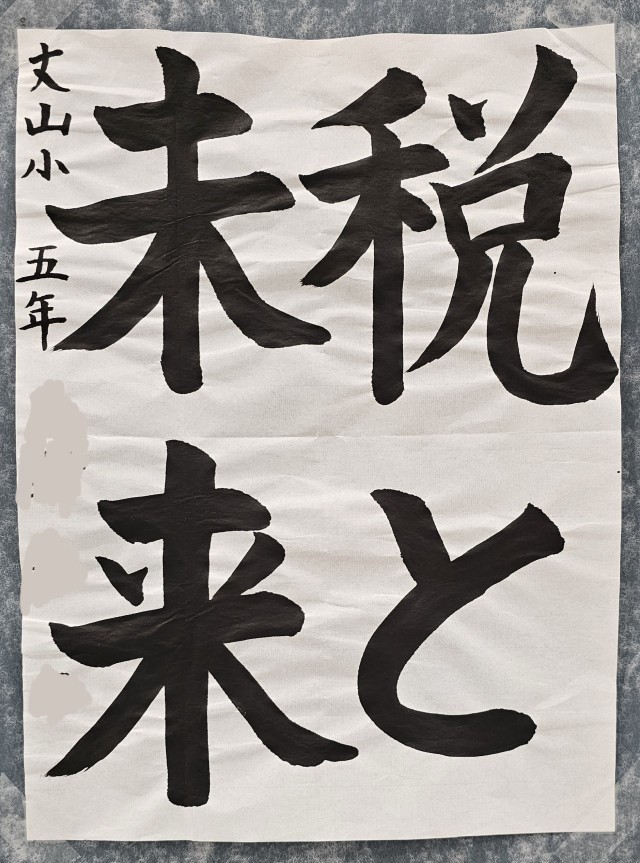 税と
未来
丈山小 五年